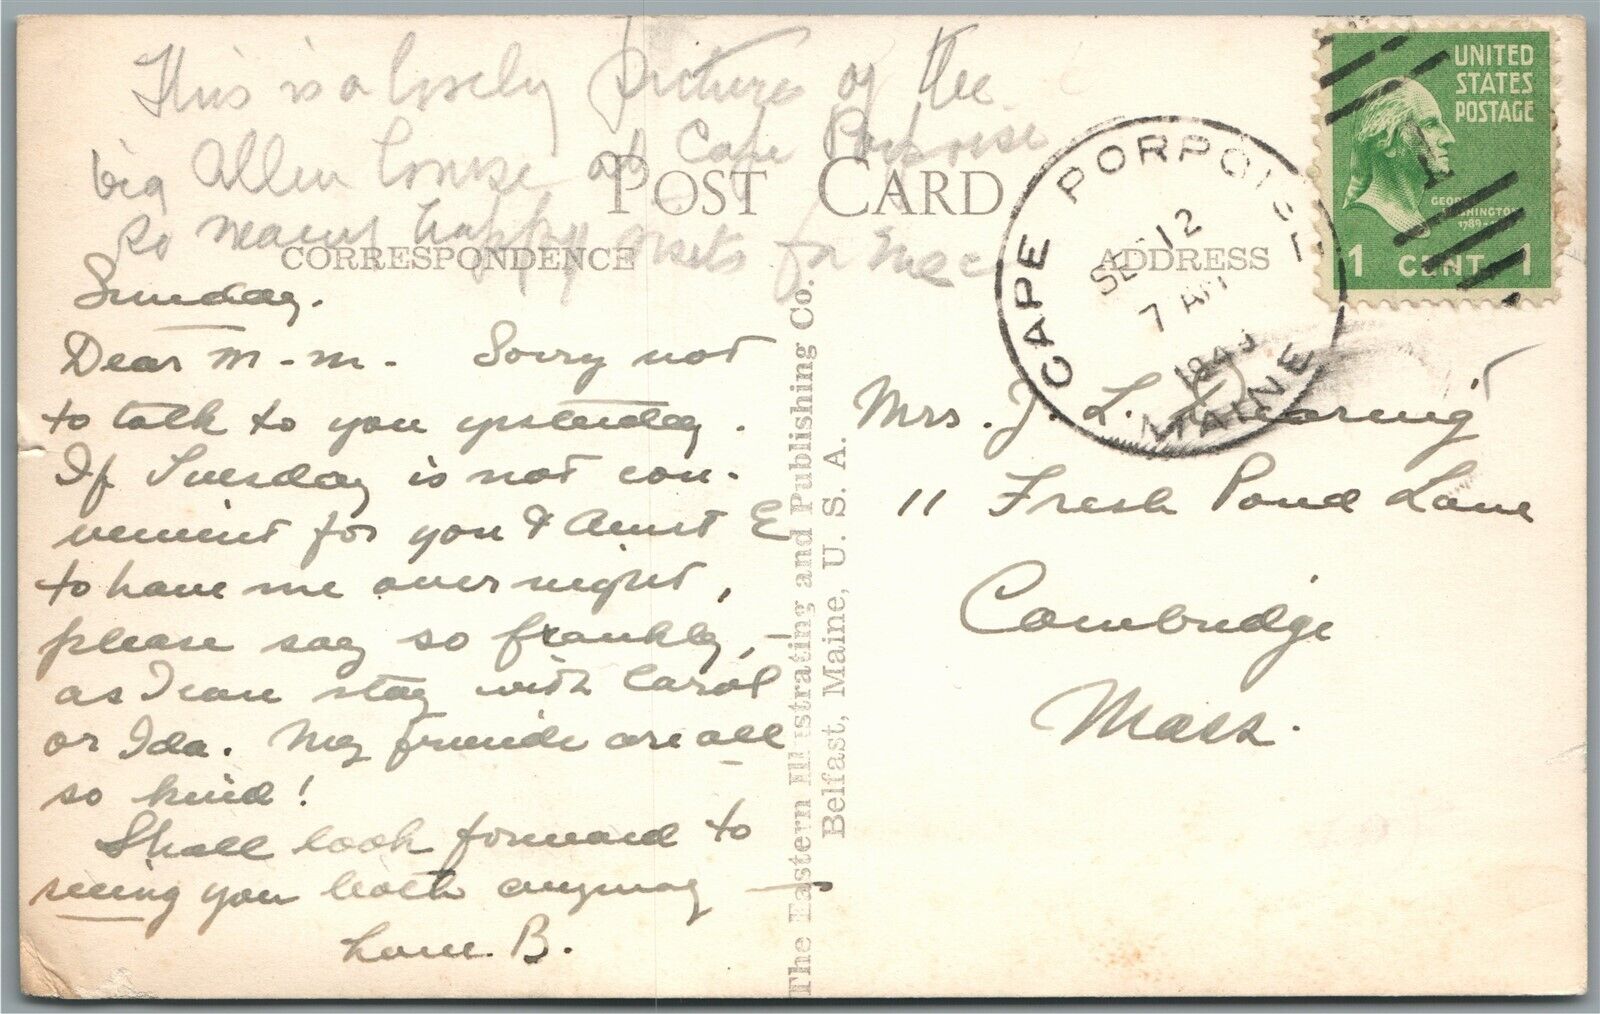 This is a lovely picture of the
big Allen house at Cape Porpoise
so many happy visits for me
POST CARD
CORRESPONDENCE
ADDRESS
Sunday.
Dear M-m. Sorry not
to talk to you yesterday.
If Tuesday is not con-
venient for you & Aunt E
to have me over night,
please say so frankly, -
as I can stay with Carol
or Ida. My friends are all
so kind!
Shall look forward to
seeing you both anyway -
Love. B.
The Eastern Illustrating and Publishing Co.
Belfast, Maine, U. S. A.
CAPE PORPOISE
SEP 12
7 AM
MAINE
UNITED
STATES
POSTAGE
1 CENT 1
Mrs. J. L.
11 Fresh Pond Lane
Cambridge
Mass.